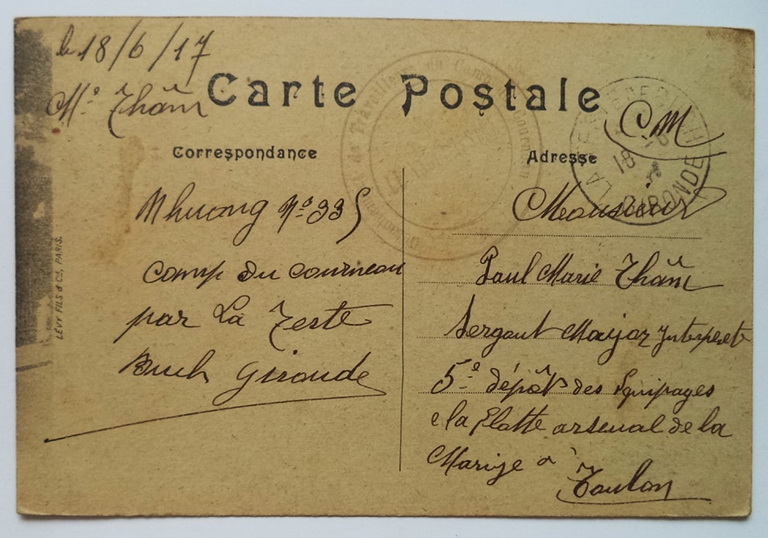 le 18/6/17
Mr Thâm
Carte Postale
CM
Correspondance
Adresse
LA TESTE DE BUCH
18
GIRONDE
Nhuong No 335
Camp du Courneau
par La Teste
Buch Gironde
Monsieur
Paul Marie Thâm
Sergent Major Interprete
5e dépôts des Equipages
de la Flotte arsenal de la
Marine à
Toulon
LÉVY FILS & Cie, PARIS.